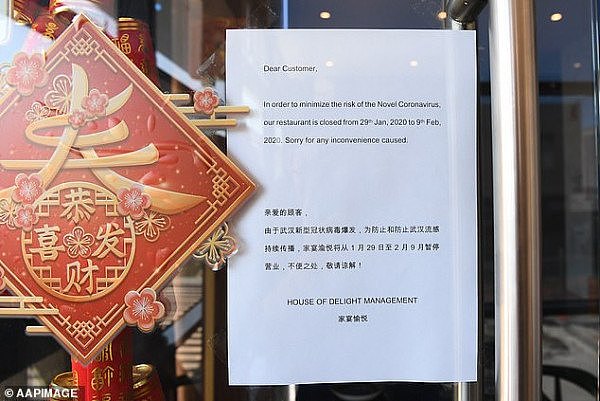 恭
喜发
财
Dear Customer,
In order to minimize the risk of the Novel Coronavirus,
our restaurant is closed from 29th Jan, 2020 to 9th Feb,
2020. Sorry for any inconvenience caused.
亲爱的顾客，
由于武汉新型冠状病毒爆发，为防止和防止武汉流感
持续传播，家宴愉悦将从 1 月 29 日至 2 月 9 日暂停
营业，不便之处，敬请谅解！
HOUSE OF DELIGHT MANAGEMENT
家宴愉悦
© AAPIMAGE